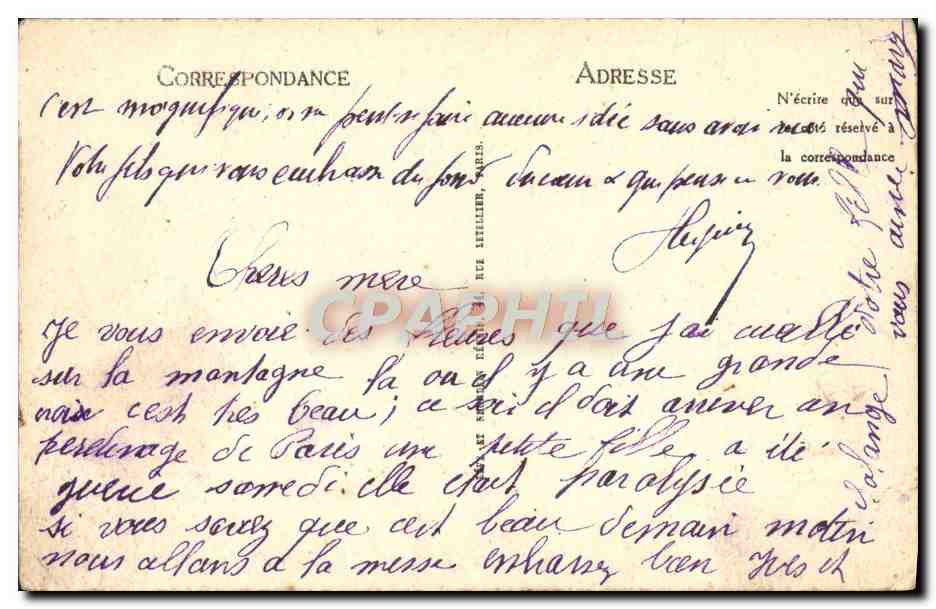 CORRESPONDANCE
ADRESSE
N'écrire que sur
le côté réservé à
la correspondance
c'est magnifique; on ne peut se faire aucune idée sans avoir vu
Votre fils qui vous embrasse du fond du cœur & qui pense a vous
Cheres mere
Je vous envoie des fleures que j'ai cuelli
sur la montagne la ou il y a une grande
croix c'est tres beau; ce soir il doit arriver un
perelinage de Paris une petite fille a été
guerie samedi elle etait paralysée
si vous saviez que c'est beau demain matin
nous allons a la messe embrassez bien Yves et
Solange Votre fils qui
vous aime
RUE LETELLIER, PARIS.
CPARHTI